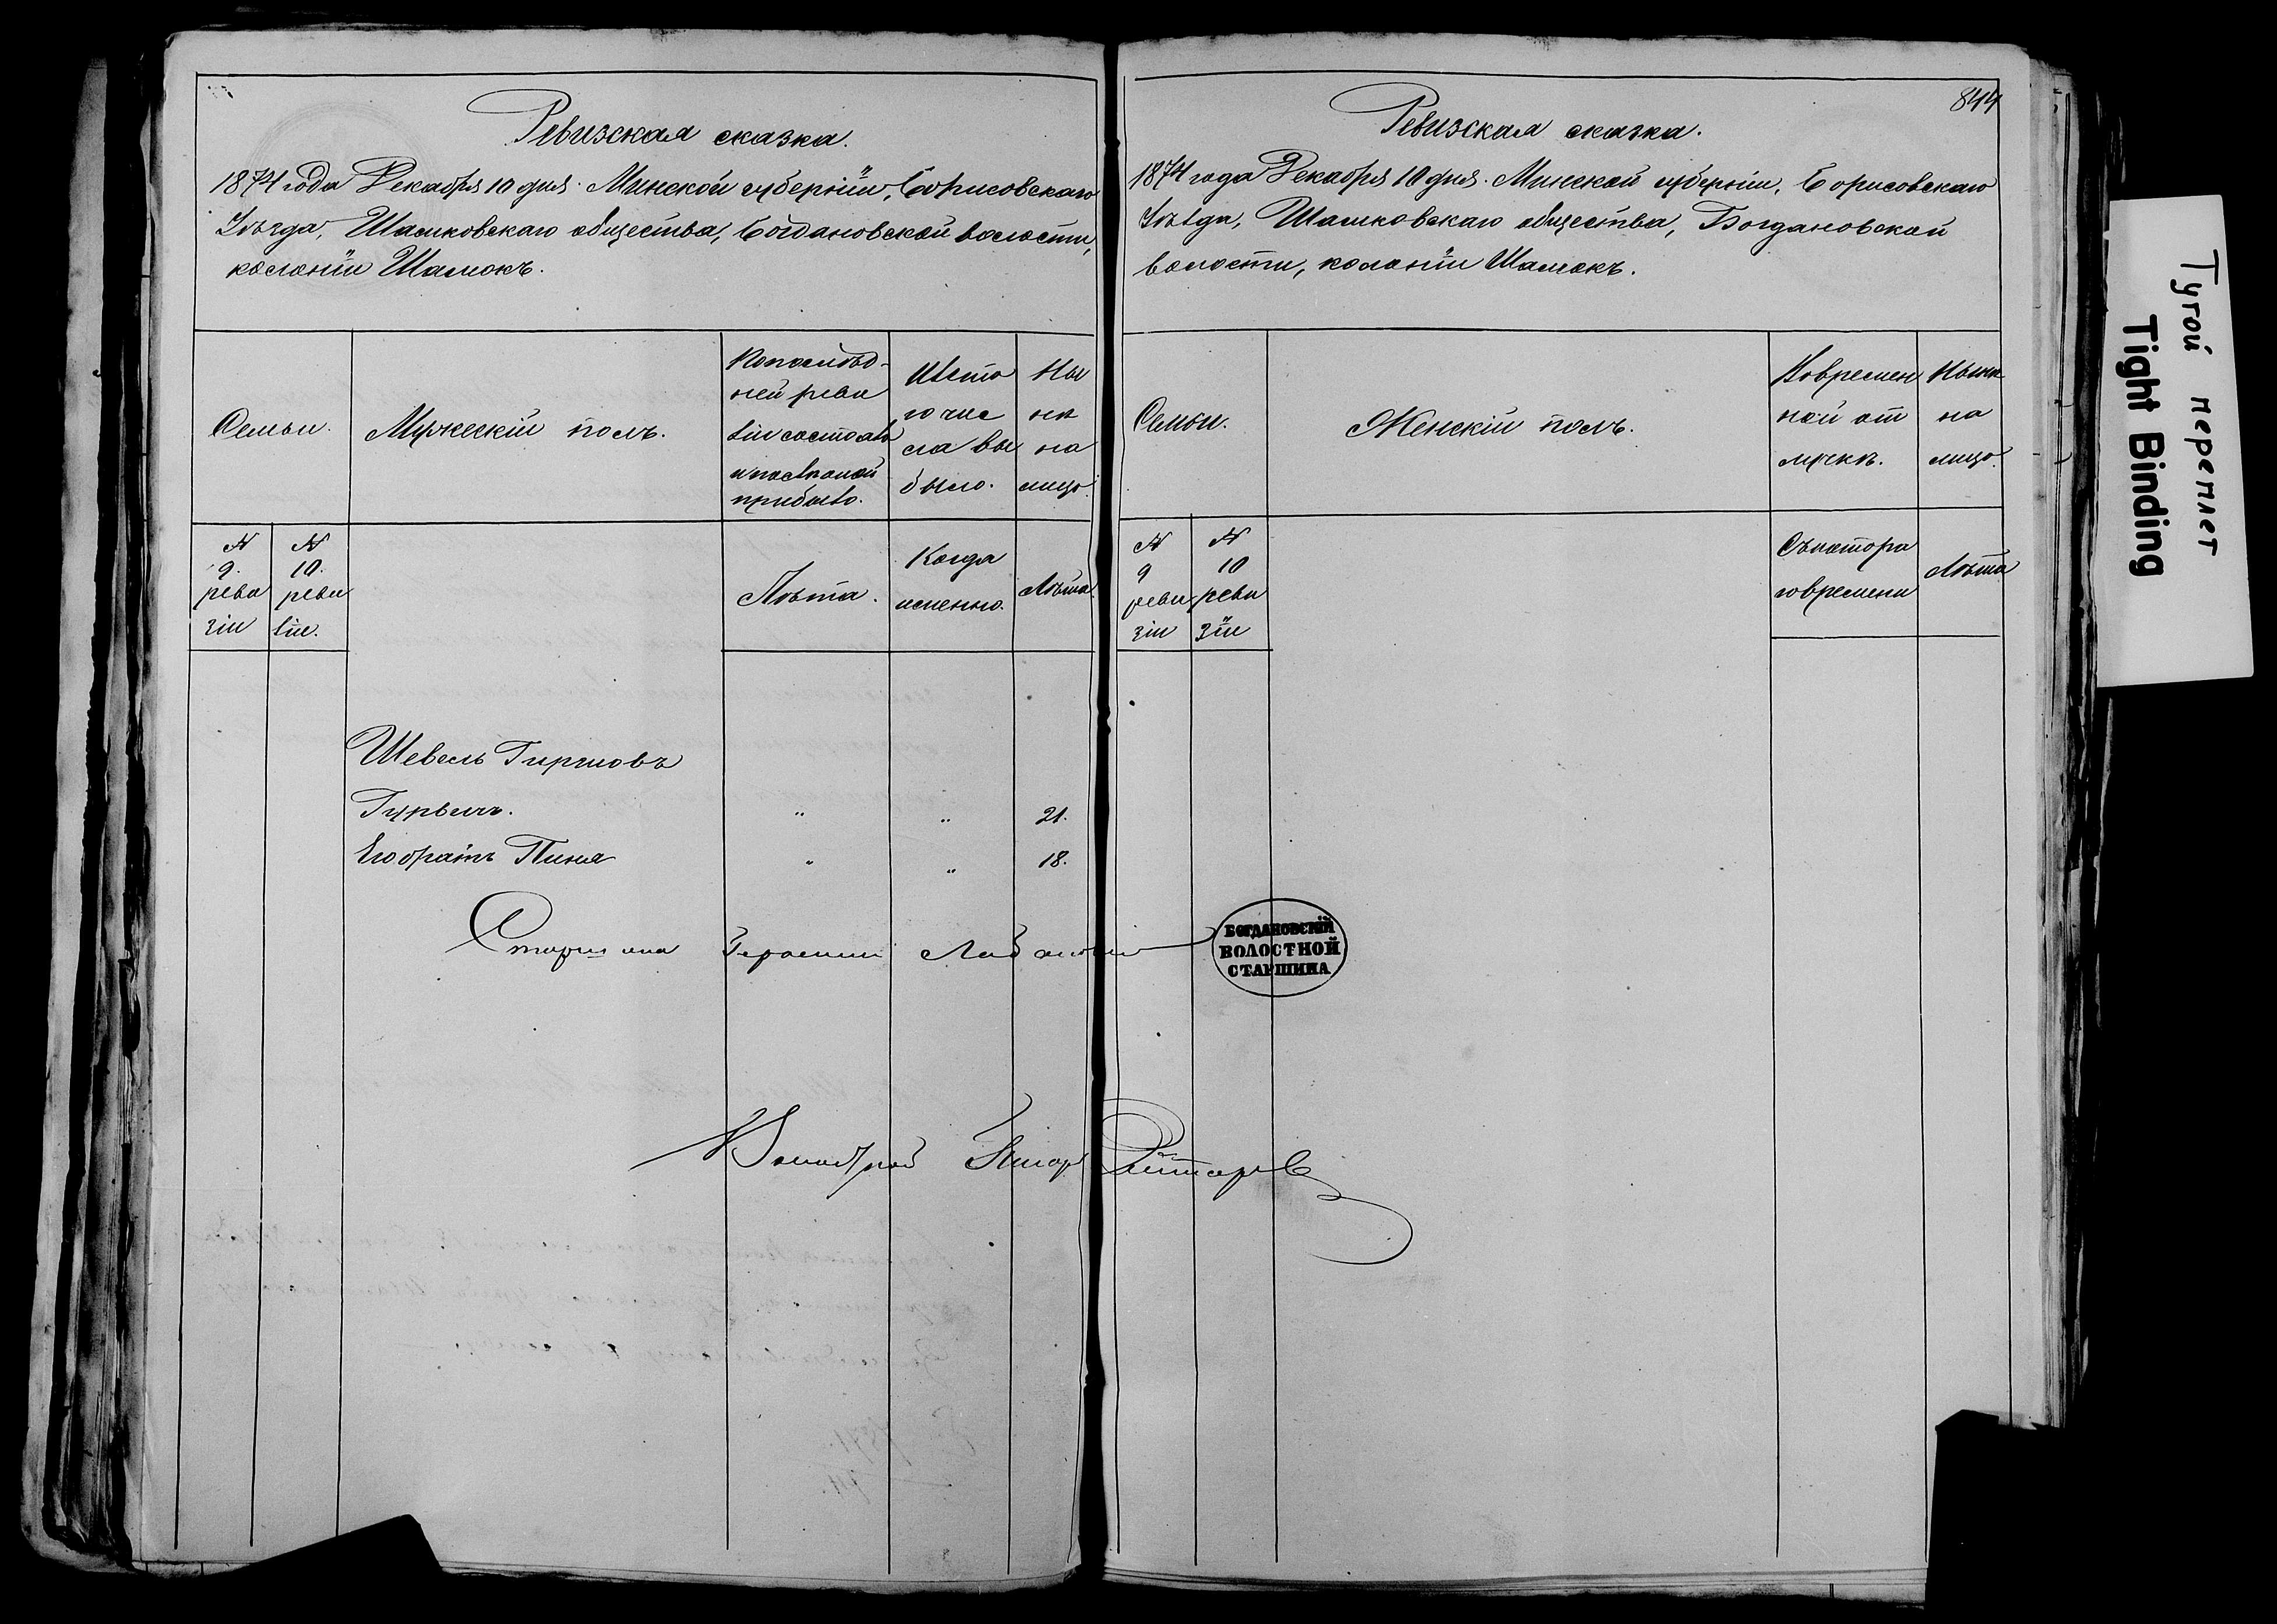 Ревизская сказка.
1874 года Декабря 10 дня. Минской губерніи, Борисовскаго
Уѣзда, Шамковскаго общества, Богдановской волости,
колоніи Шамокъ.
Семьи.
Мужескій полъ.
По послѣд-
ней реви
зіи состояло
и послѣ оной
прибыло.
Изъ то
го чис
ла вы
было.
Ны
нѣ
на
лицо.
N
9.
реви
зіи
N
10.
реви
зіи.
Лѣта.
Когда
именно.
Лѣта.
Шевель Гиршовъ
Гурвичъ. " " 21.
Его братъ Пиня " " 18.
Старшина Герасим
844
Ревизская сказка.
1874 года Декабря 10 дня. Минской губерніи, Борисовскаго
Уѣзда, Шамковскаго общества, Богдановской
волости, колоніи Шамокъ.
Семьи.
Женскій полъ.
Во времен
ной от
лучкѣ.
Нынѣ
на
лицо.
N
9
реви
зіи
N
10
реви
зіи
Съ котора
го времени
Лѣта
БОГДАНОВСКІЙ
ВОЛОСТНОЙ
СТАРШИНА
Тугой переплет
Tight Binding